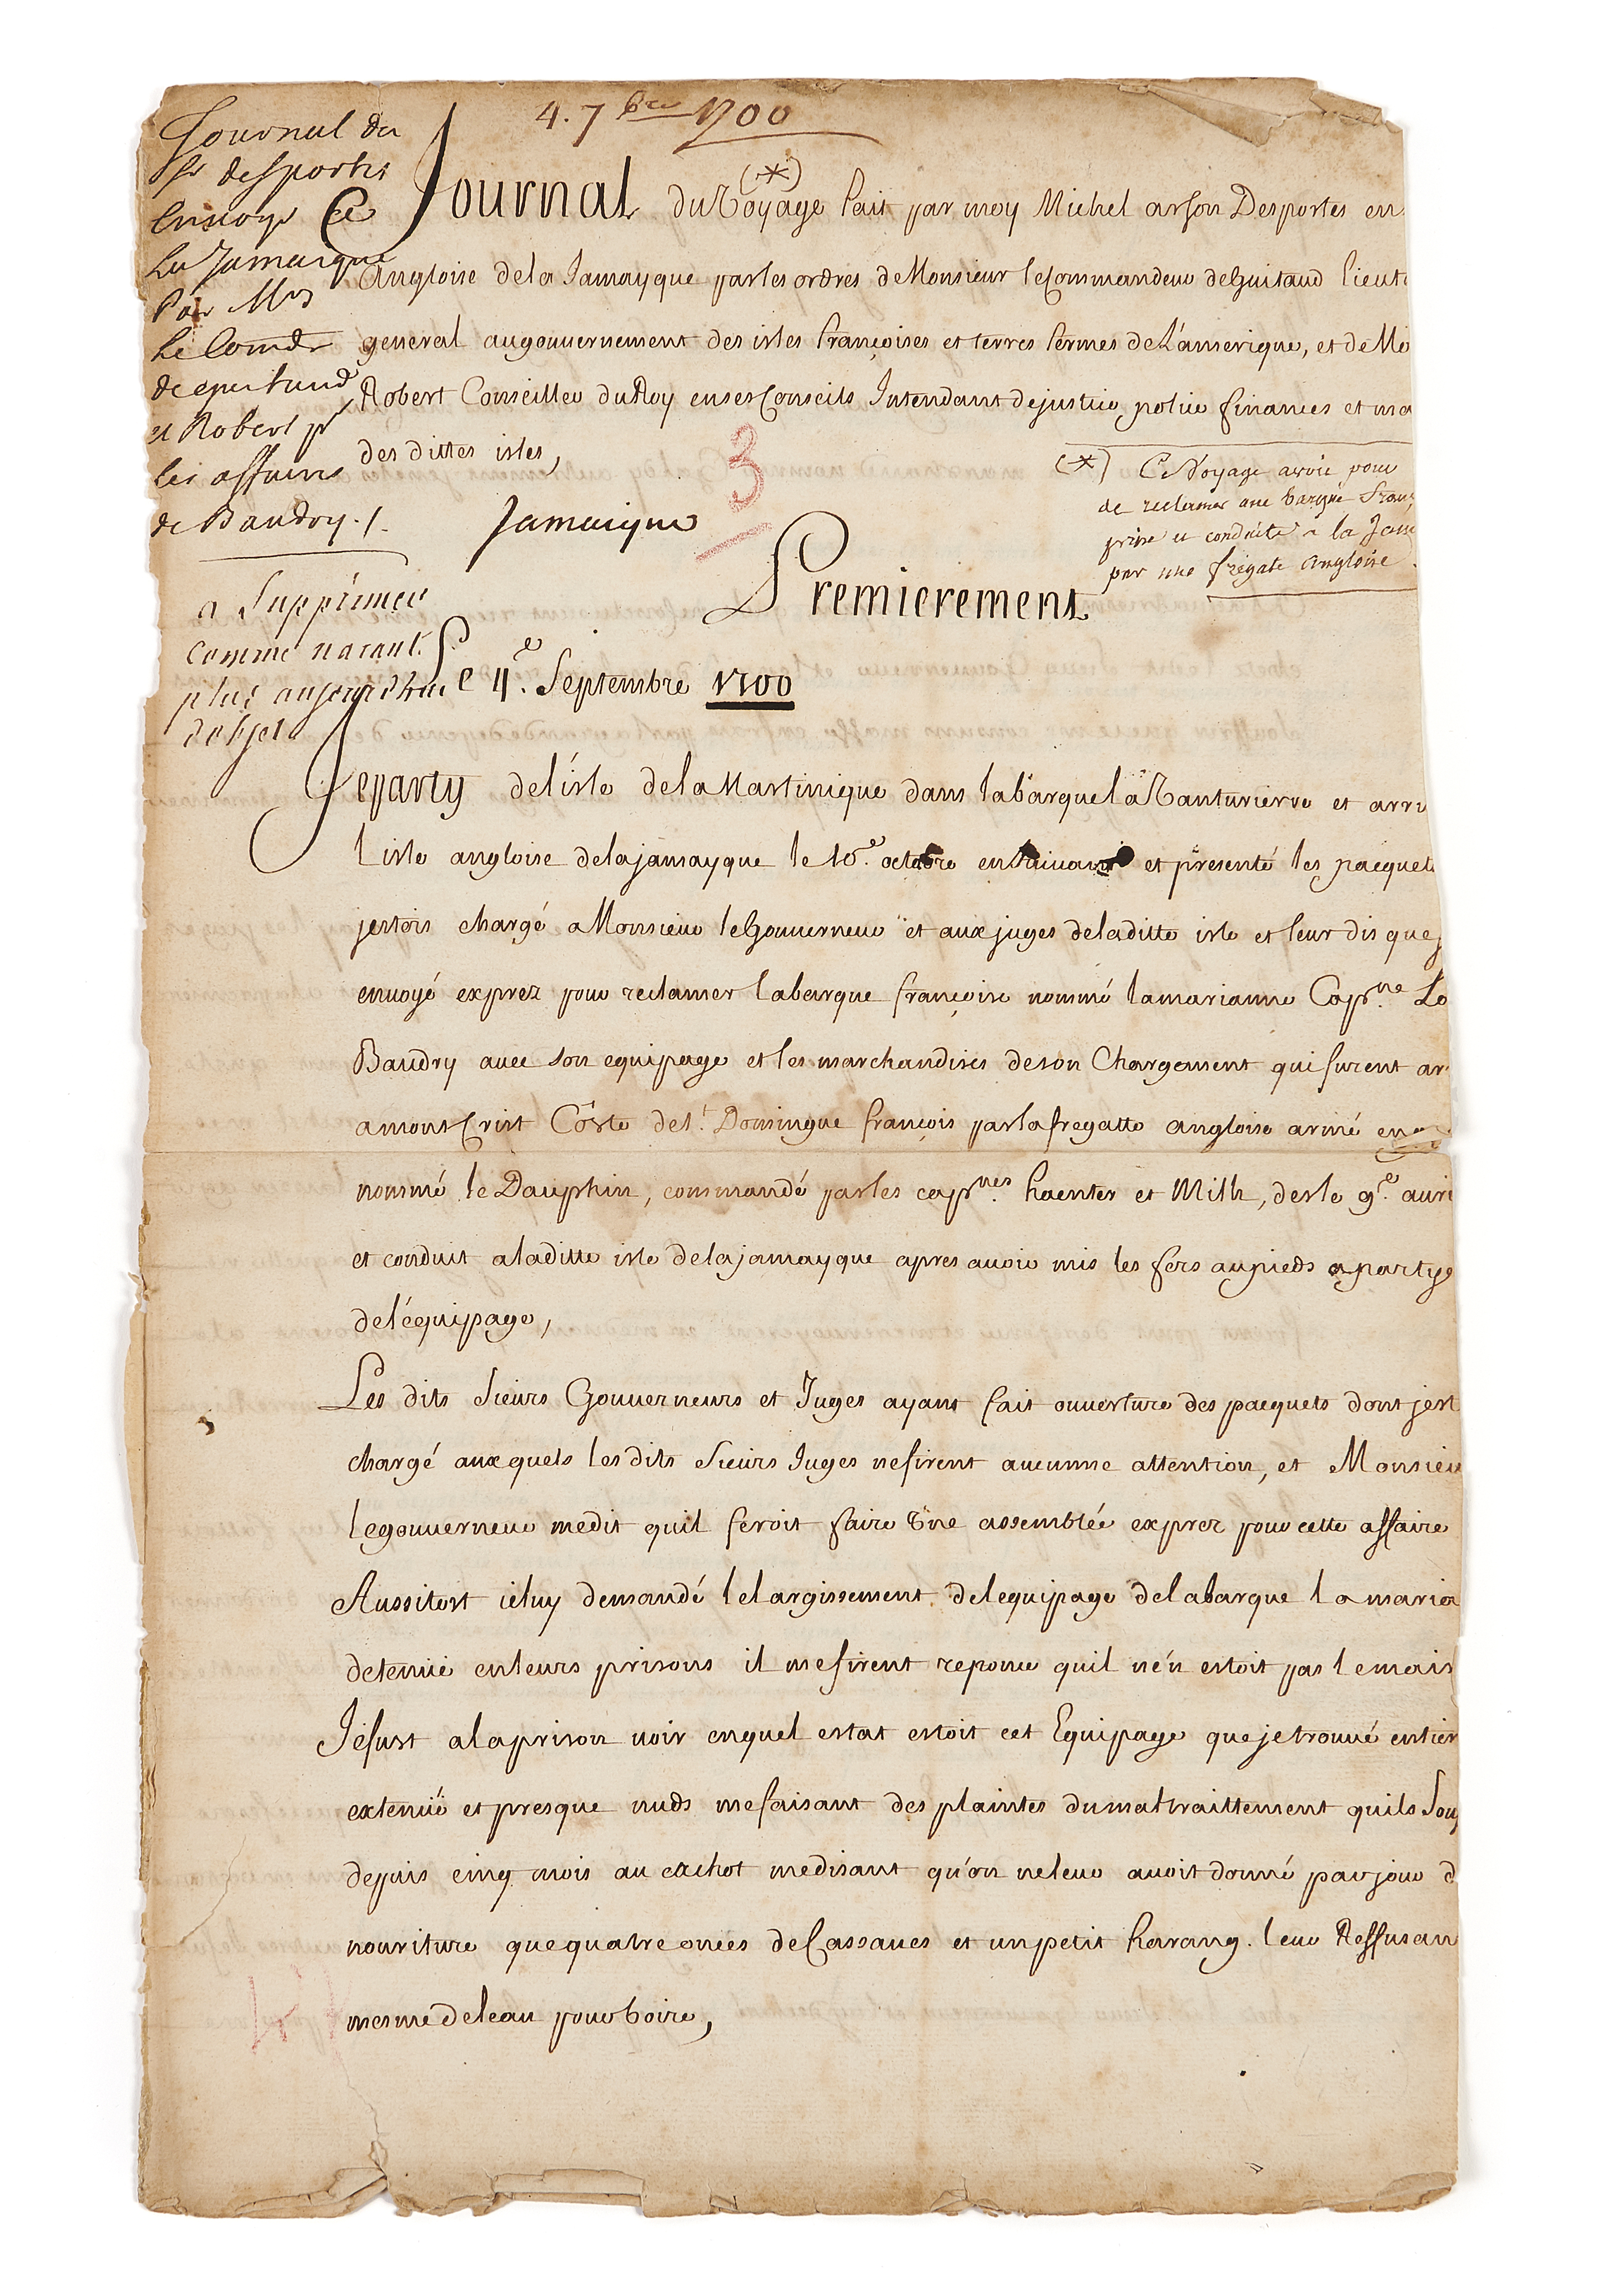 4. 7bre 1700
Journal du
Sr desportes
Envoyé a
La Jamaique
Par Mrs
Le Comdr
de guitaud
et Robert pr
les affaires
de Baudry ./.
a Supprimer
comme n'ayant
plus aujourd'hui
d'objet
Journal du Voyage fait par moy Michel arson Desportes en
(*)
Angloise de la Jamayque par les ordres de Monsieur le Commandeur de Guitaud lieut
general au gouvernement des isles françoises et terres fermes de L'amerique, et de Mo
Robert Conseiller du Roy en ses Conseils Intendant de justice, police finances et ma
des dittes isles,
3
Jamaique
(*) Ce Voyage avoit pour
de reclamer une barque Franç
prise et conduite a la Jam
par une fregate angloise
Premierement
Le 4e. Septembre 1700
Je party de l'isle de la Martinique dans la barque la Vanturierre et arri
l'isle angloise de la jamayque le 10e. octobre ensuivant et presenté les pacquets
jestois chargé a Monsieur le Gouverneur et aux juges de la ditte isle et leur dis que j
envoyé exprez pour reclamer la barque françoise nommé la marianne Capne. Lo
Baudry avec son equipage et les marchandises de son Chargement qui furent ar
a mont Crist Coste de St. Domingue françois par la fregatte angloise armé en
nommé le Dauphin, commandé par les capnes. haenter et Mith, des le 9e. auri
et conduit a la ditte isle de la jamayque apres avoir mis les fers au pieds a partye
de l'équipage,
Les dits Sieurs Gouverneurs et Juges ayant fait ouverture des pacquets dont jest
chargé aux quels les dits Sieurs Juges ne firent aucunne attention, et Monsieu
le gouverneur me dit quil feroit faire une assemblée exprez pour cette affaire
Aussitost ie luy demandé lelargissement de lequipage de la barque la maria
detenüe en leurs prisons il me firent reponce quil n'en estoit pas le mais
Je fust a la prison voir en quel estat estoit cet Equipage que je trouvé entier
extenüé et presque nuds me faisant des plaintes du mal traittement quils Sou
depuis cinq mois au cachot me disant qu'on ne leur avoit donné par jour d
nouriture que quatre onces de Cassaves et un petit harang. leur Reffusan
mesme de leau pour boire,